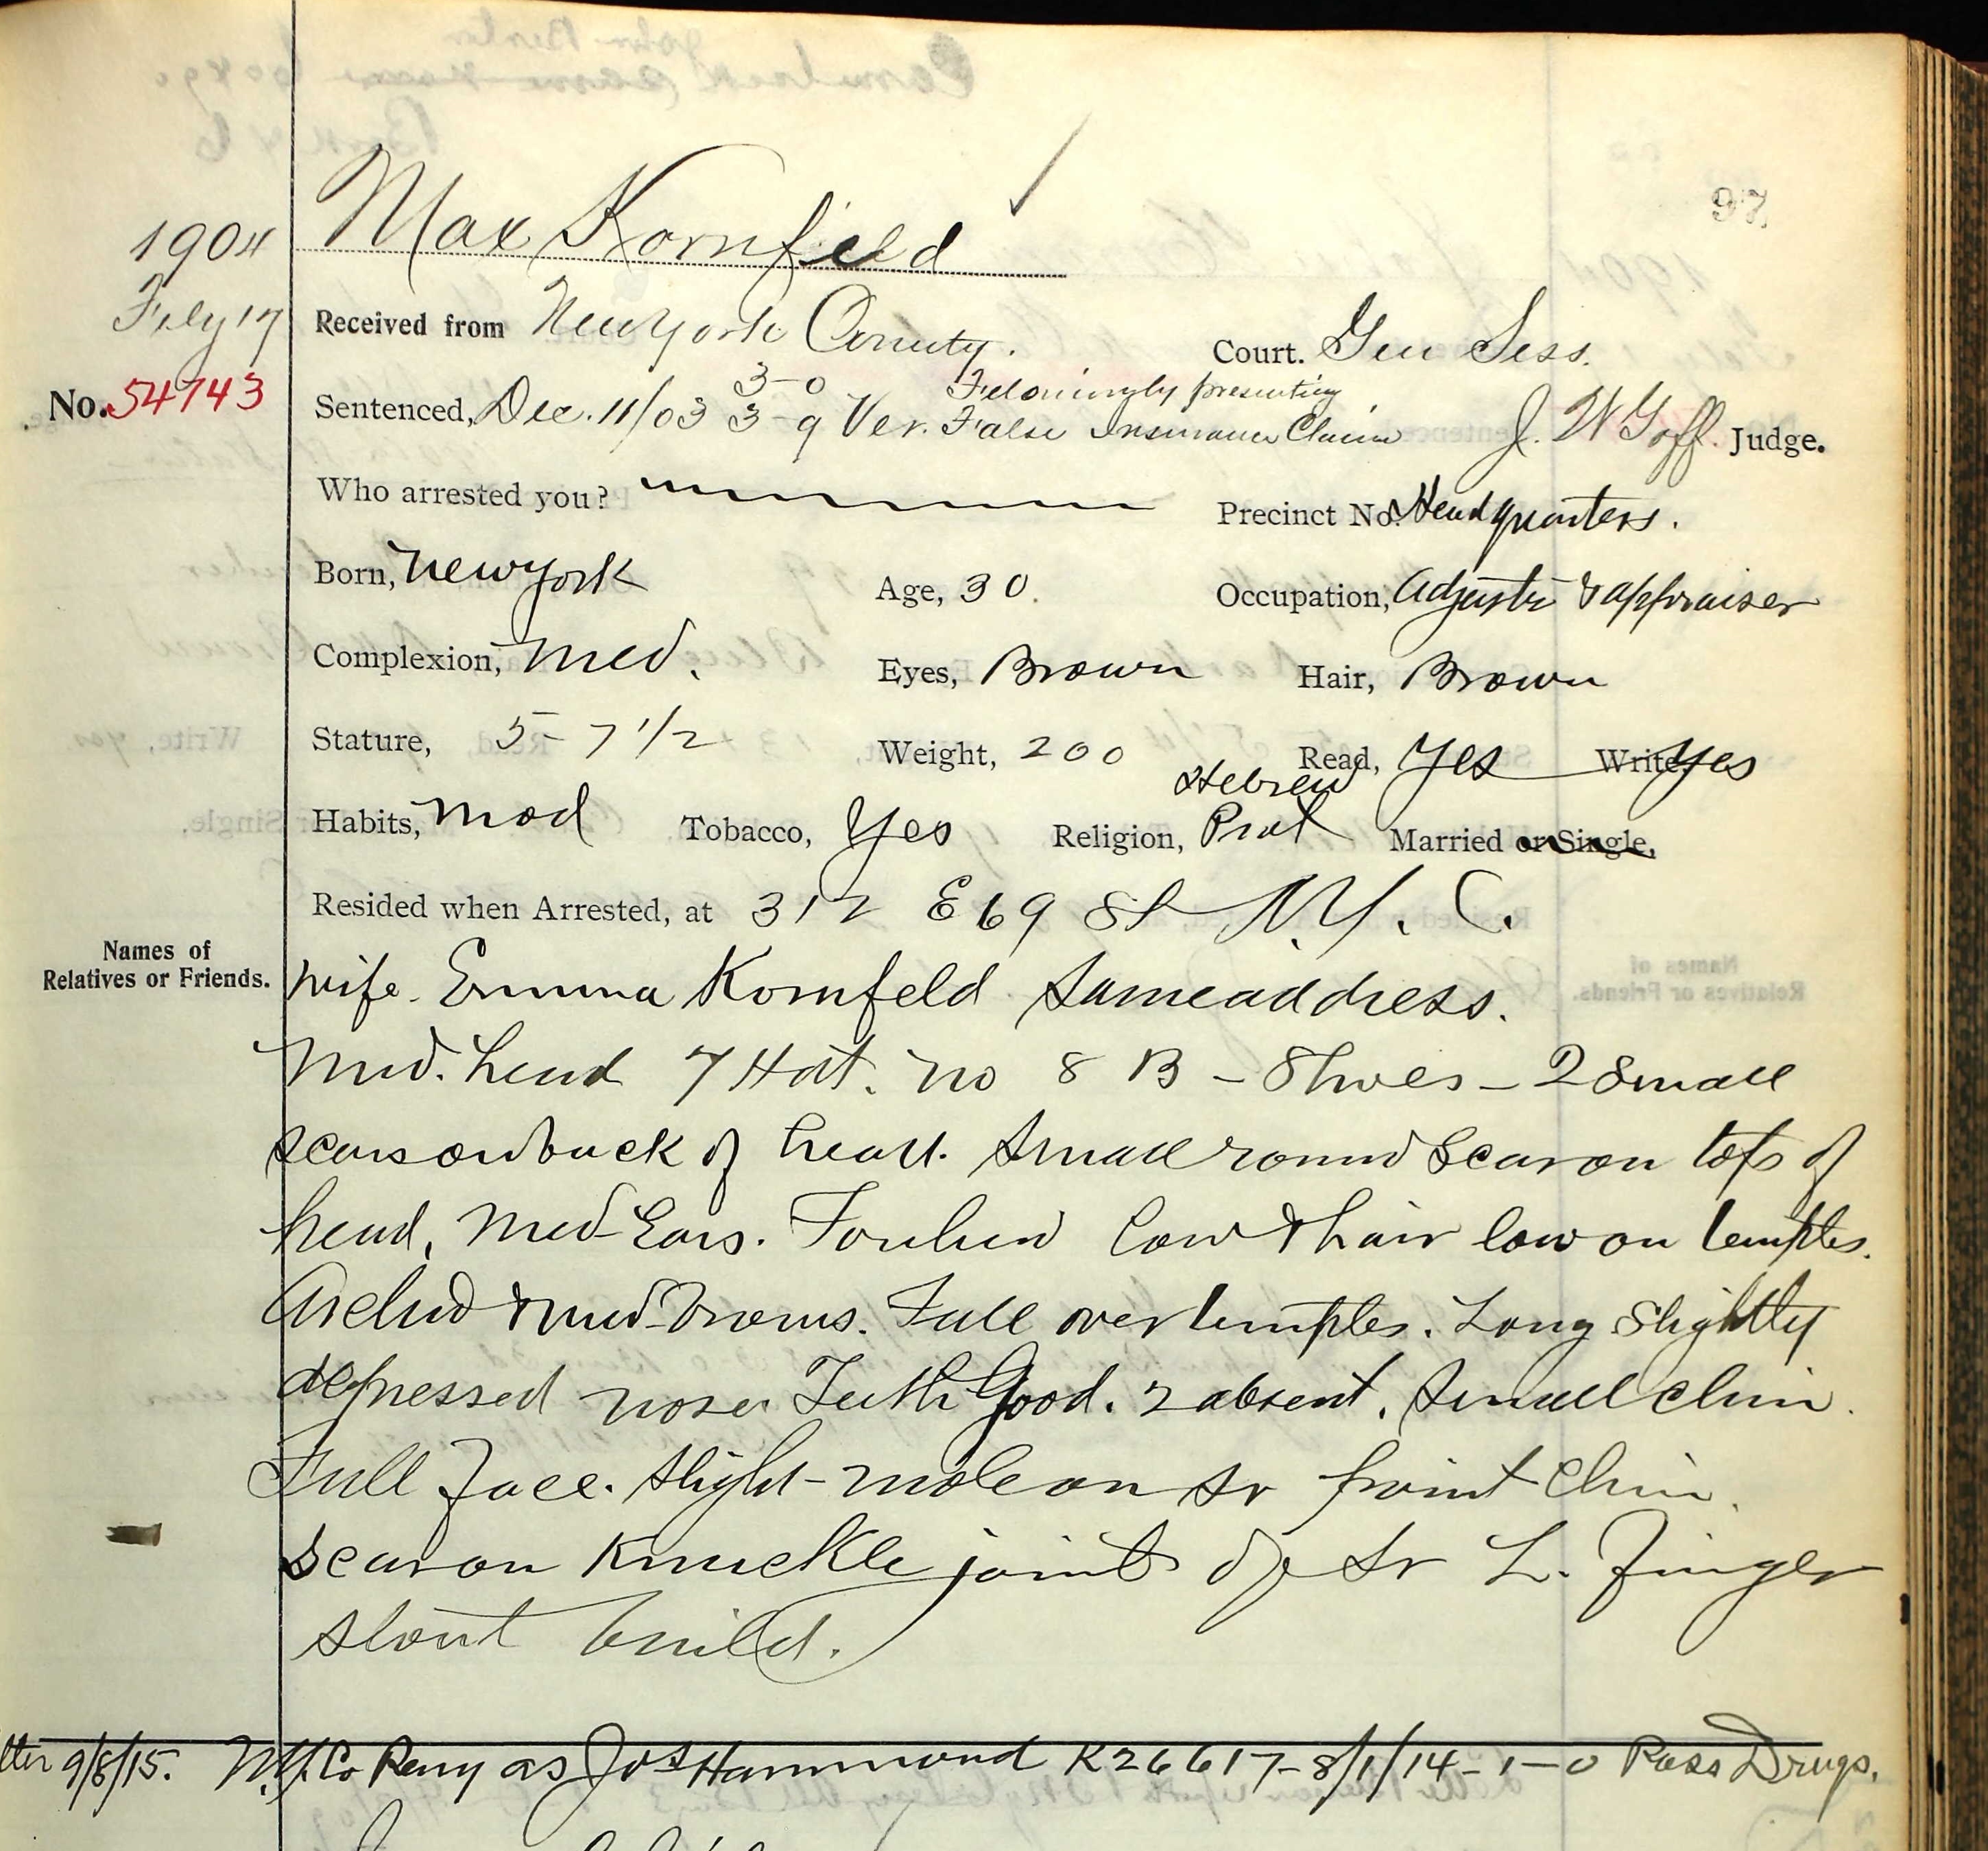 97
1904 Max Kornfeld
Feby 17 Received from New York County. Court. Gen Sess.
3-0 Feloniously presenting
No. 54743 Sentenced, Dec. 11/03 3-9 Ver. False Insurance Claim J. W Goff. Judge.
Who arrested you? Precinct No. Headquarters.
Born, New York Age, 30. Occupation, Adjuster & appraiser
Complexion, Med. Eyes, Brown Hair, Brown
Stature, 5-7 1/2 Weight, 200 Read, Yes Write, Yes
Hebrew
Habits, Mod Tobacco, Yes Religion, Prot Married or Single,
Resided when Arrested, at 312 E 69 St N.Y. C.
Names of
Relatives or Friends. Wife. Emma Kornfeld Same address.
Med. head 7 Hat. No 8 B - Shoes - 2 Small
scars on back of head. Small round Scar on top of
head, Med Ears. Forehead low & hair low on temples.
Arched & med brows. Full over temples. Long Slightly
depressed nose. Teeth Good. 2 absent. Small chin.
Full face. Slight mole on front Chin.
Scar on Knuckle joint of L. Finger
Stout build.
9/8/15. N.Y. Co Peny as Jos Hammond K26617-8/1/14-1-0 Poss Drugs.